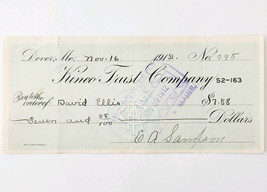 Dover, Me. Nov. 16 1912 No. 995
Kineo Trust Company 52-163
Pay to the
order of David Ellis $7.58
Seven and 58/100 Dollars
E A Sampson